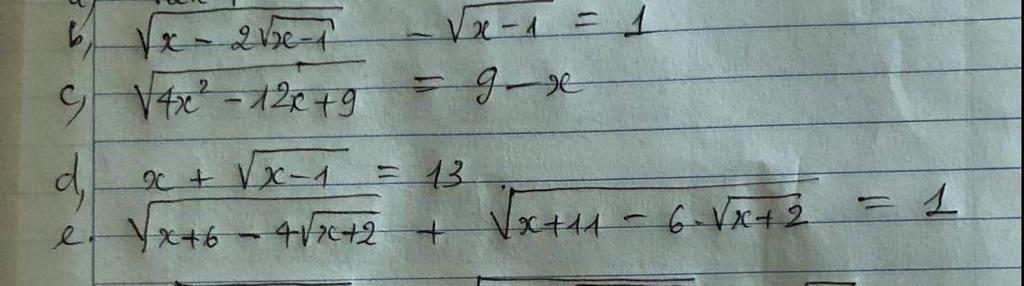 b, √(x - 2√(x-1)) - √(x-1) = 1
c, √(4x² - 12x + 9) = 9 - x
d, x + √(x-1) = 13
e. √(x+6 - 4√(x+2)) + √(x+11 - 6.√(x+2)) = 1